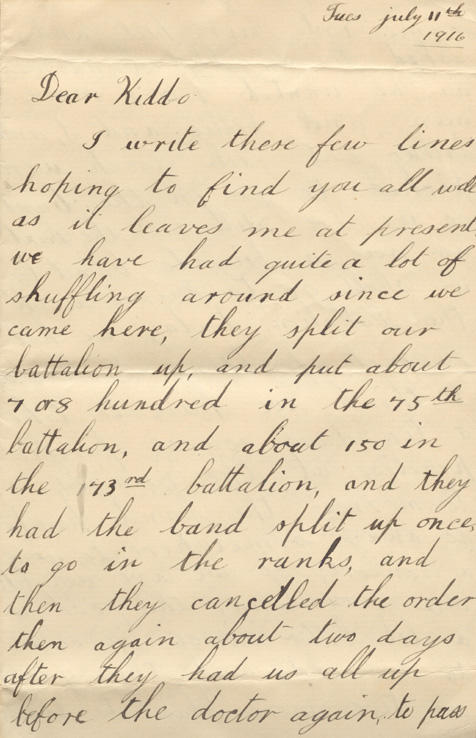 Tues july 11th
1916
Dear Kiddo
I write these few lines
hoping to find you all well
as it leaves me at present
we have had quite a lot of
shuffling around since we
came here, they split our
battalion up, and put about
7 or 8 hundred in the 75th
battalion, and about 150 in
the 173rd battalion, and they
had the band split up once,
to go in the ranks, and
then they cancelled the order
then again about two days
after they had us all up
before the doctor again, to pass